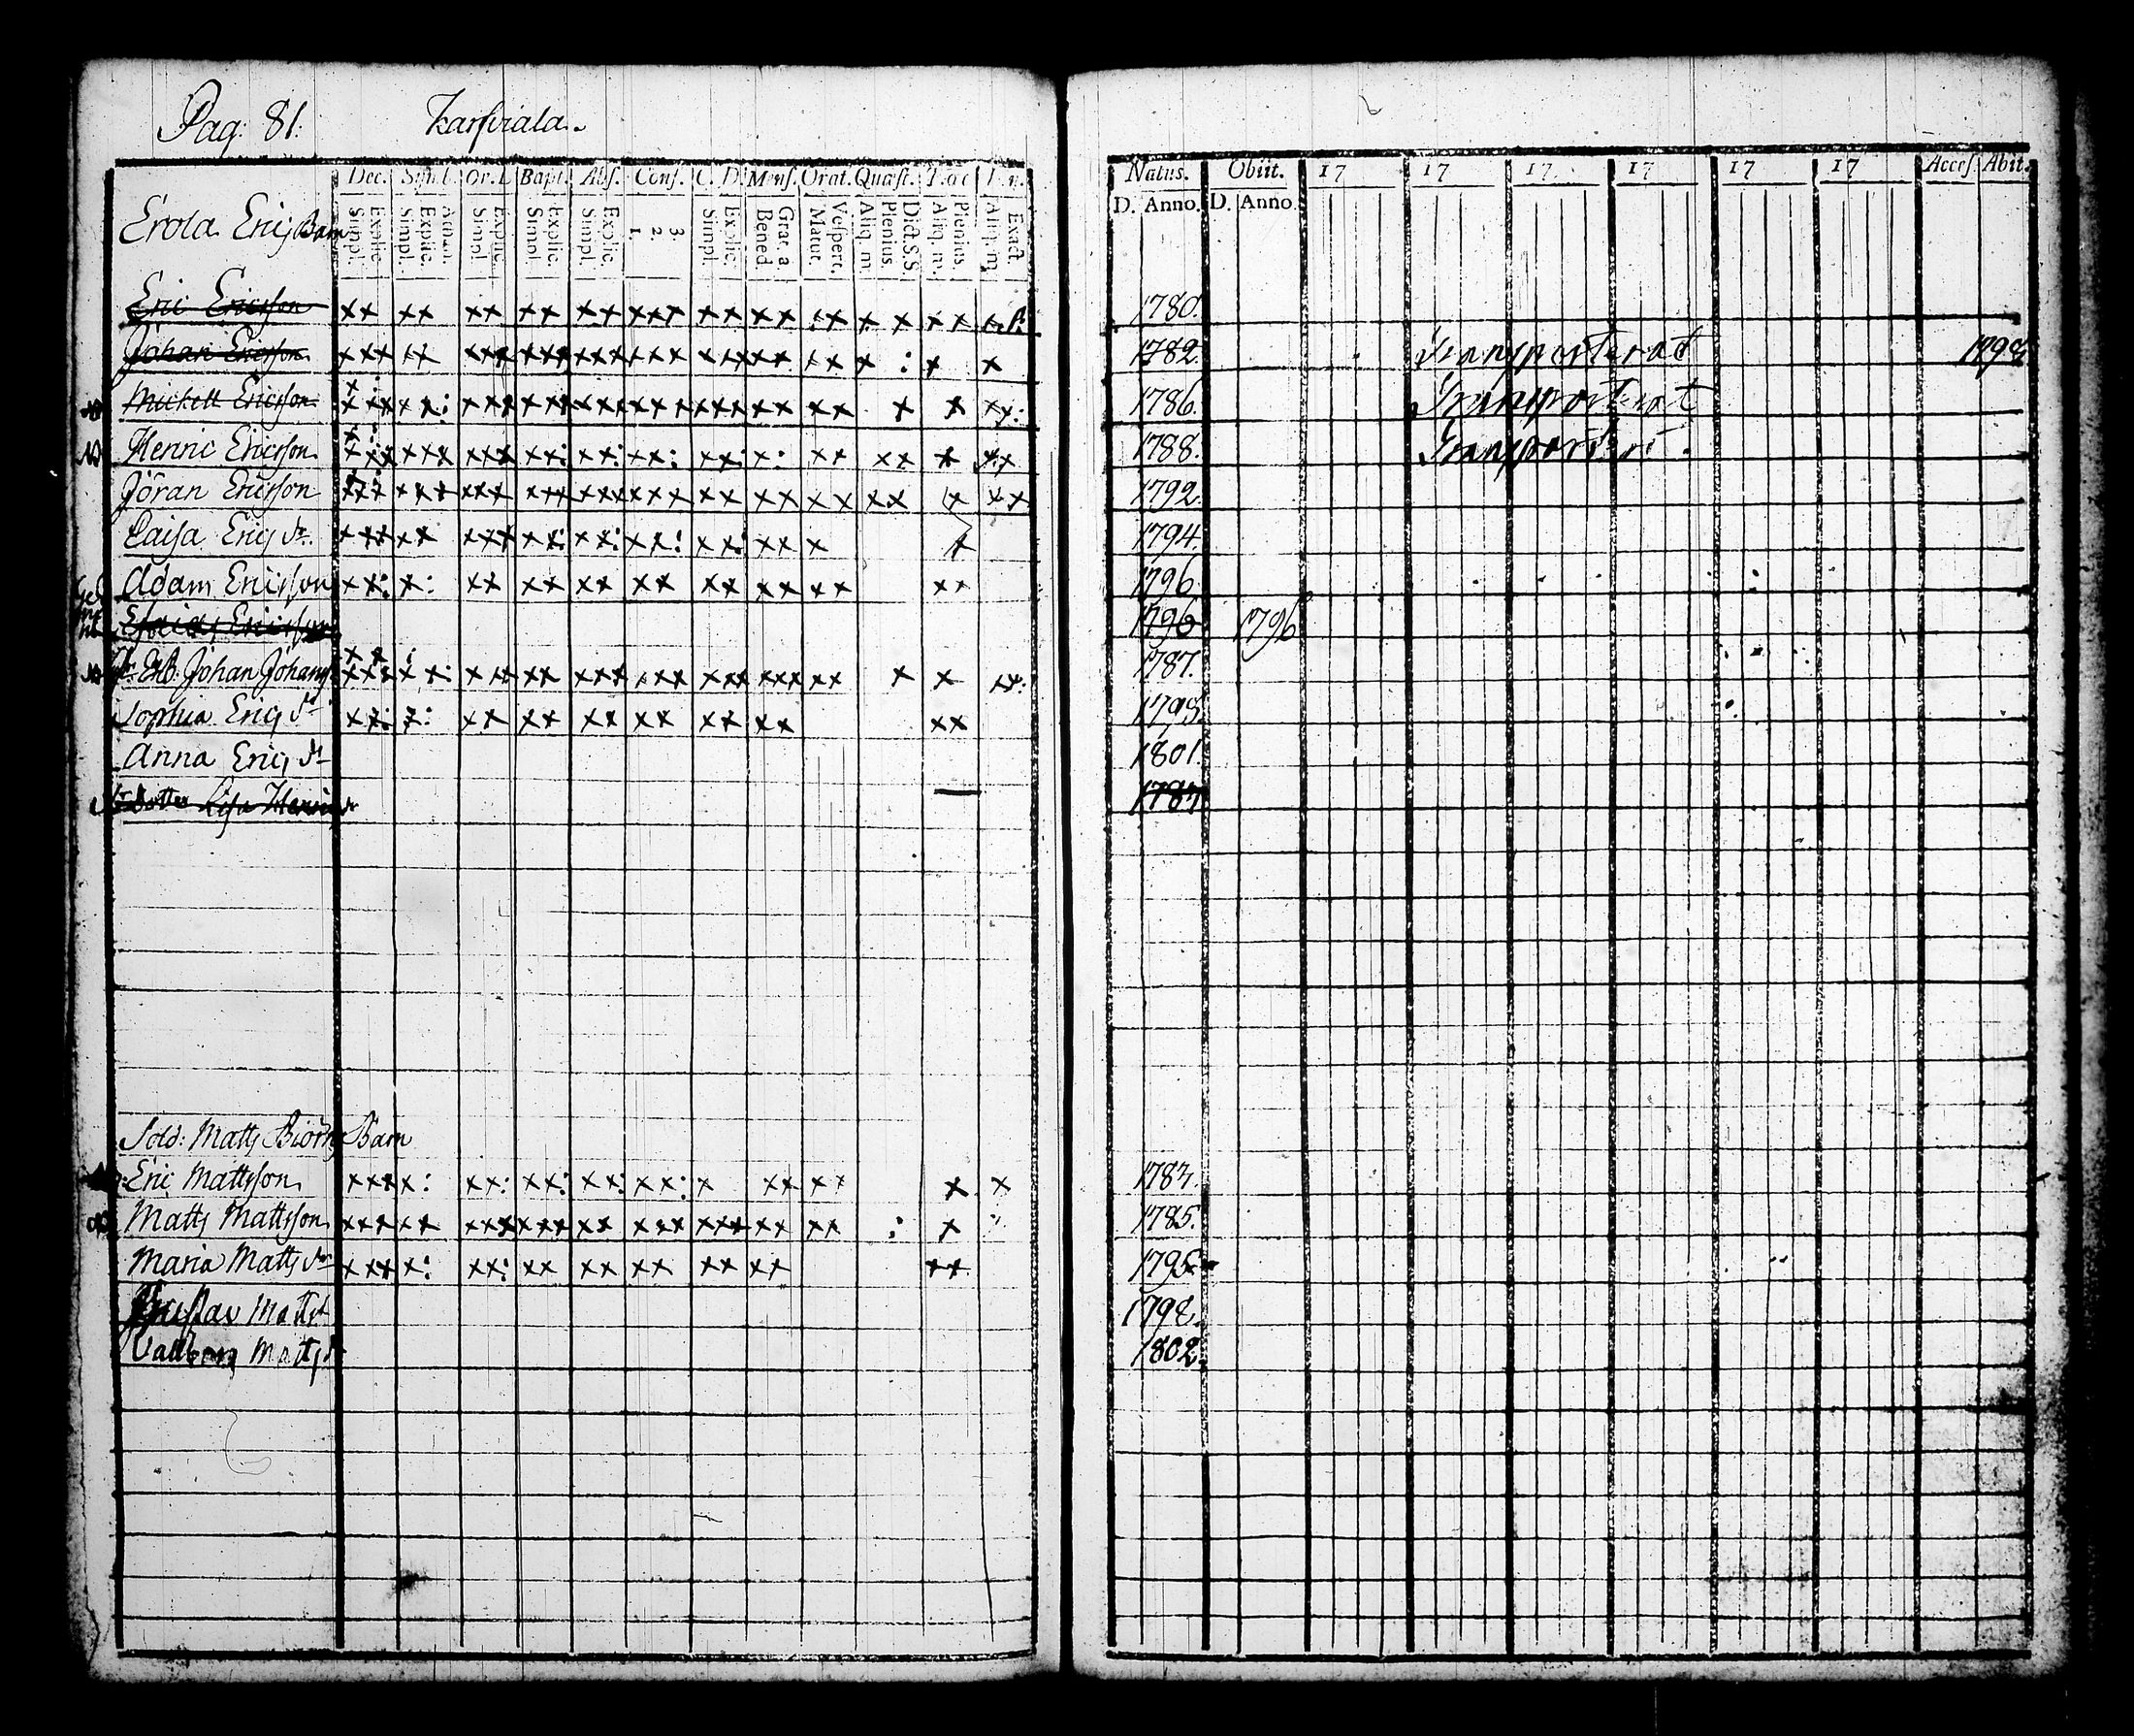 Pag: 81.
Karfviala.
Dec. Symb. Or. D. Bapt. Abs. Conf. C. D. Mens. Orat. Quæst. T. œc
Simpl. Explic. Simpl. Explic. Athan. Simpl. Explic. Simpl. Explic. Simpl. Explic. 1. 2. 3. Simpl. Explic. Bened. Grat. a. Matut. Vespert. Aliq. m. Plenius. Dict. S.S. Aliq. m. Plenius. Aliq. m. Exact.
Natus. Obiit. 17 17 17 17 17 17 Access. Abit.
D. Anno. D. Anno.
Erola Erics Barn
Eric Ericsson 1780.
Johan Ericsson 1782 Transporterad
Mickell Ericsson 1786. Transporterat
Henric Ericsson 1788. Transporterat.
Jöran Ericsson 1792.
Caisa Erics dr. 1794.
Adam Ericsson 1796
Esaias Ericsson 1796 1796
Johan Johans 1787.
Sophia Erics dr
Anna Erics dr 1801.
Dotter Lisa Henrics dr
Sold: Matts Biörns Barn
Eric Mattsson
Matts Mattsson 1785.
Maria Matts dr 1795
Gustav Matts
Valborg Matts d 1802.